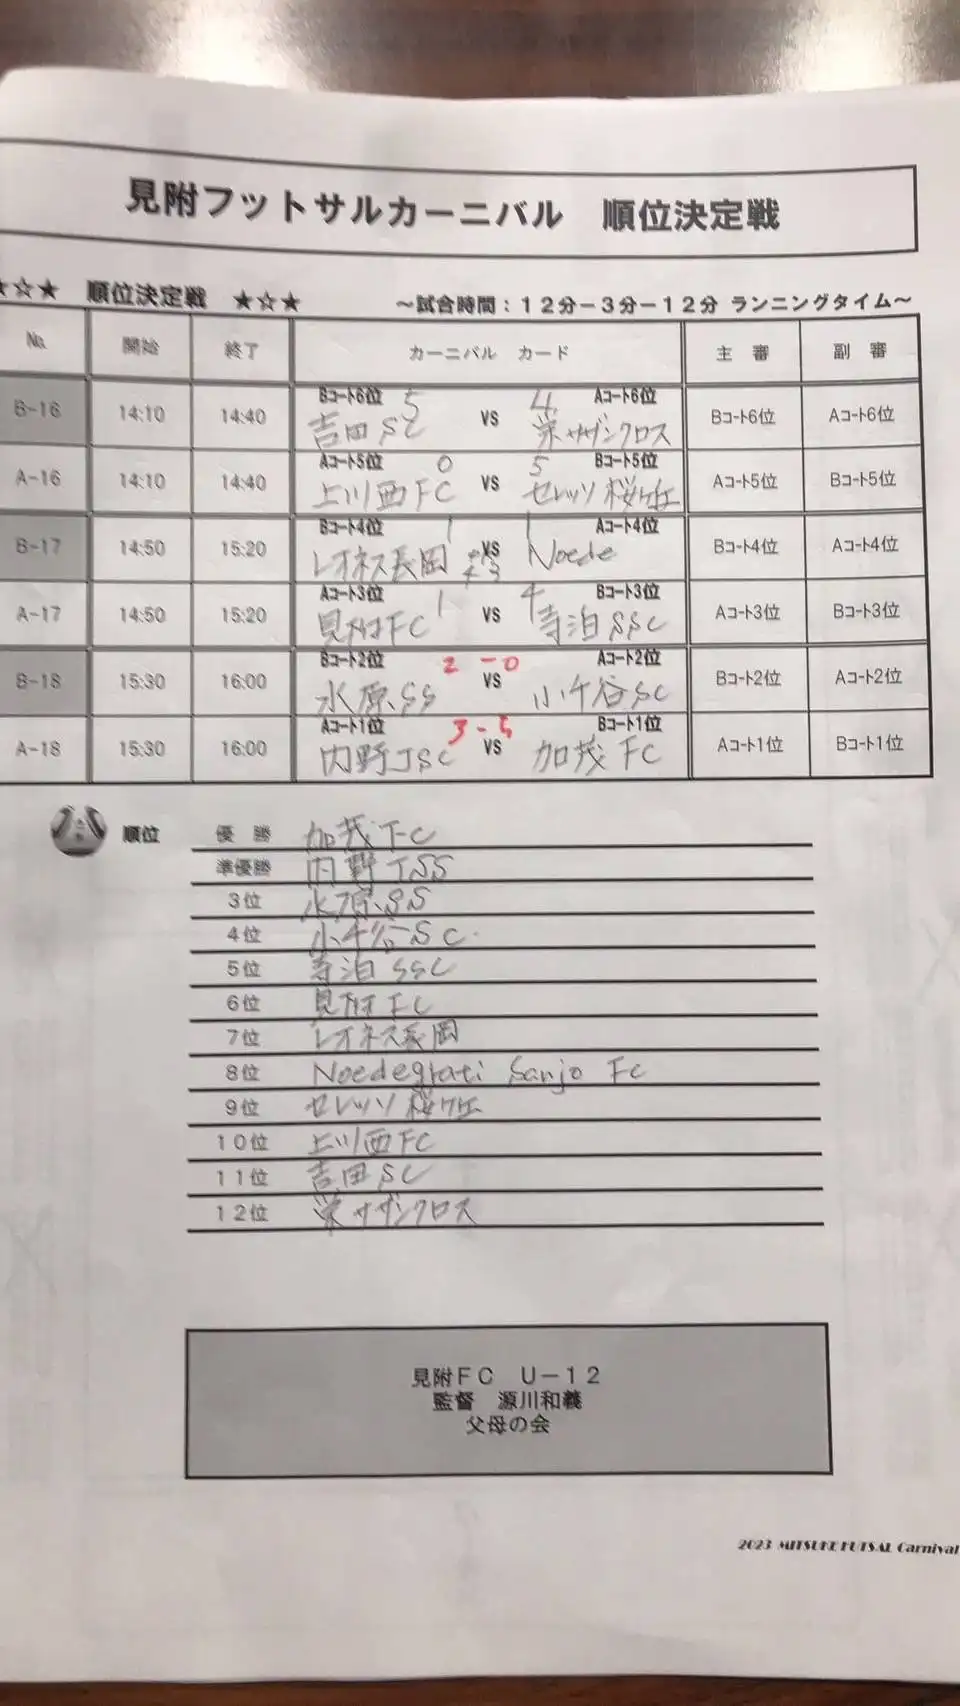 見附フットサルカーニバル 順位決定戦
★☆★ 順位決定戦 ★☆★ ～試合時間：１２分－３分－１２分 ランニングタイム～
No. 開始 終了 カーニバル カード 主 審 副 審
Bコート6位 5 4 Aコート6位
B-16 14:10 14:40 吉田SC VS 栄サザンクロス Bコート6位 Aコート6位
Aコート5位 0 5 Bコート5位
A-16 14:10 14:40 上川西FC VS セレッソ桜ヶ丘 Aコート5位 Bコート5位
Bコート4位 1 1 Aコート4位
B-17 14:50 15:20 レオネス長岡 VS Noede Bコート4位 Aコート4位
Aコート3位 1 4 Bコート3位
A-17 14:50 15:20 見附FC VS 寺泊SSC Aコート3位 Bコート3位
Bコート2位 2 - 0 Aコート2位
B-18 15:30 16:00 水原SS VS 小千谷SC Bコート2位 Aコート2位
Aコート1位 3 - 5 Bコート1位
A-18 15:30 16:00 内野JSC VS 加茂FC Aコート1位 Bコート1位
順位 優 勝 加茂FC
準優勝 内野JSS
３位 水原SS
４位 小千谷SC
５位 寺泊SSC
６位 見附FC
７位 レオネス長岡
８位 Noedegrati Sanjo FC
９位 セレッソ桜ヶ丘
１０位 上川西FC
１１位 吉田SC
１２位 栄サザンクロス
見附ＦＣ Ｕ－１２
監督 源川和義
父母の会
2023 MITSUKE FUTSAL Carnival